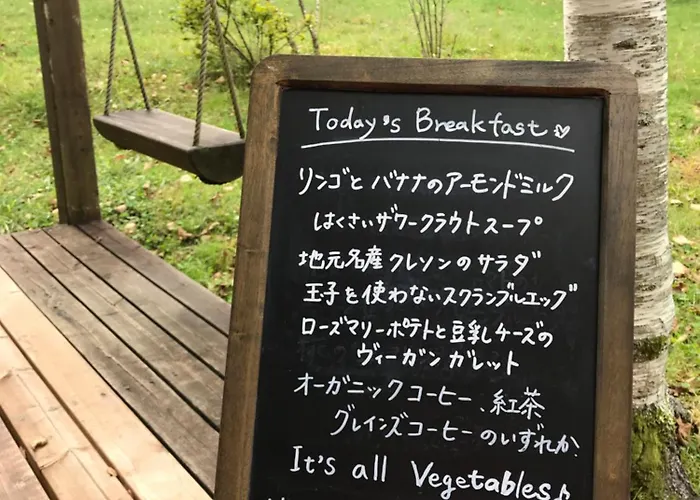 Today's Breakfast♡
リンゴとバナナのアーモンドミルク
はくさいザワークラウトスープ
地元名産クレソンのサラダ
玉子を使わないスクランブルエッグ
ローズマリーポテトと豆乳チーズの
ヴィーガンガレット
オーガニックコーヒー、紅茶
グレインズコーヒーのいずれか
It's all Vegetables♪